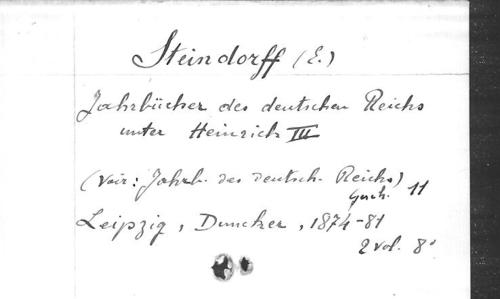 Steindorff (E.)
Jahrbücher des deutschen Reichs
unter Heinrich III
(voir : Jahrb. des deutsch. Reichs)
Gesch. 11
Leipzig, Duncker, 1874-81
2 vol. 8°